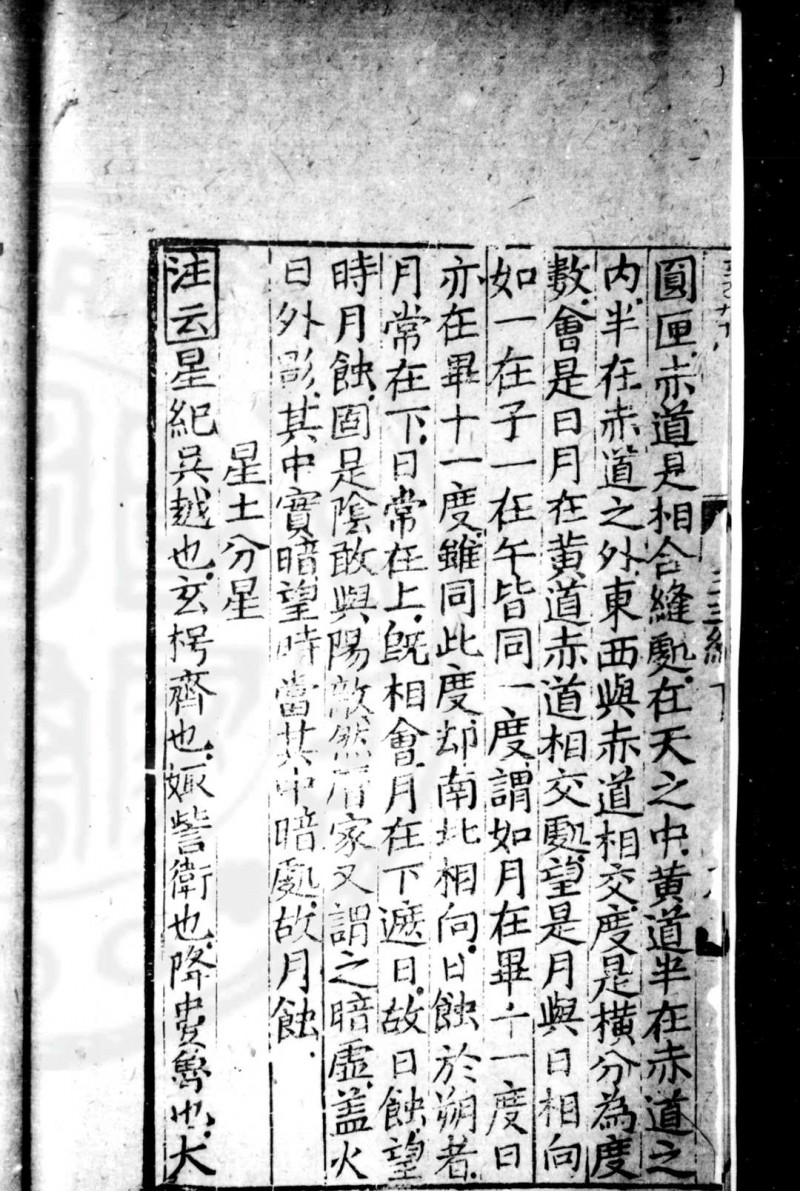 圓匣赤道是相合縫䖏在天之中黄道半在赤道之
内半在赤道之外東西與赤道相交度是橫分為度
數會是日月在黄道赤道相交䖏望是月與日相向
如一在子一在午皆同一度謂如月在畢十一度日
亦在畢十一度雖同此度却南北相向日蝕於朔者
月常在下日常在上既相會月在下遮日故日蝕望
時月蝕固是陰敢與陽敵然曆家又謂之暗虛盖火
日外影其中實暗望時當其中暗䖏故月蝕
星土分星
注云星紀吳越也玄枵齊也娵訾衛也降婁魯也大